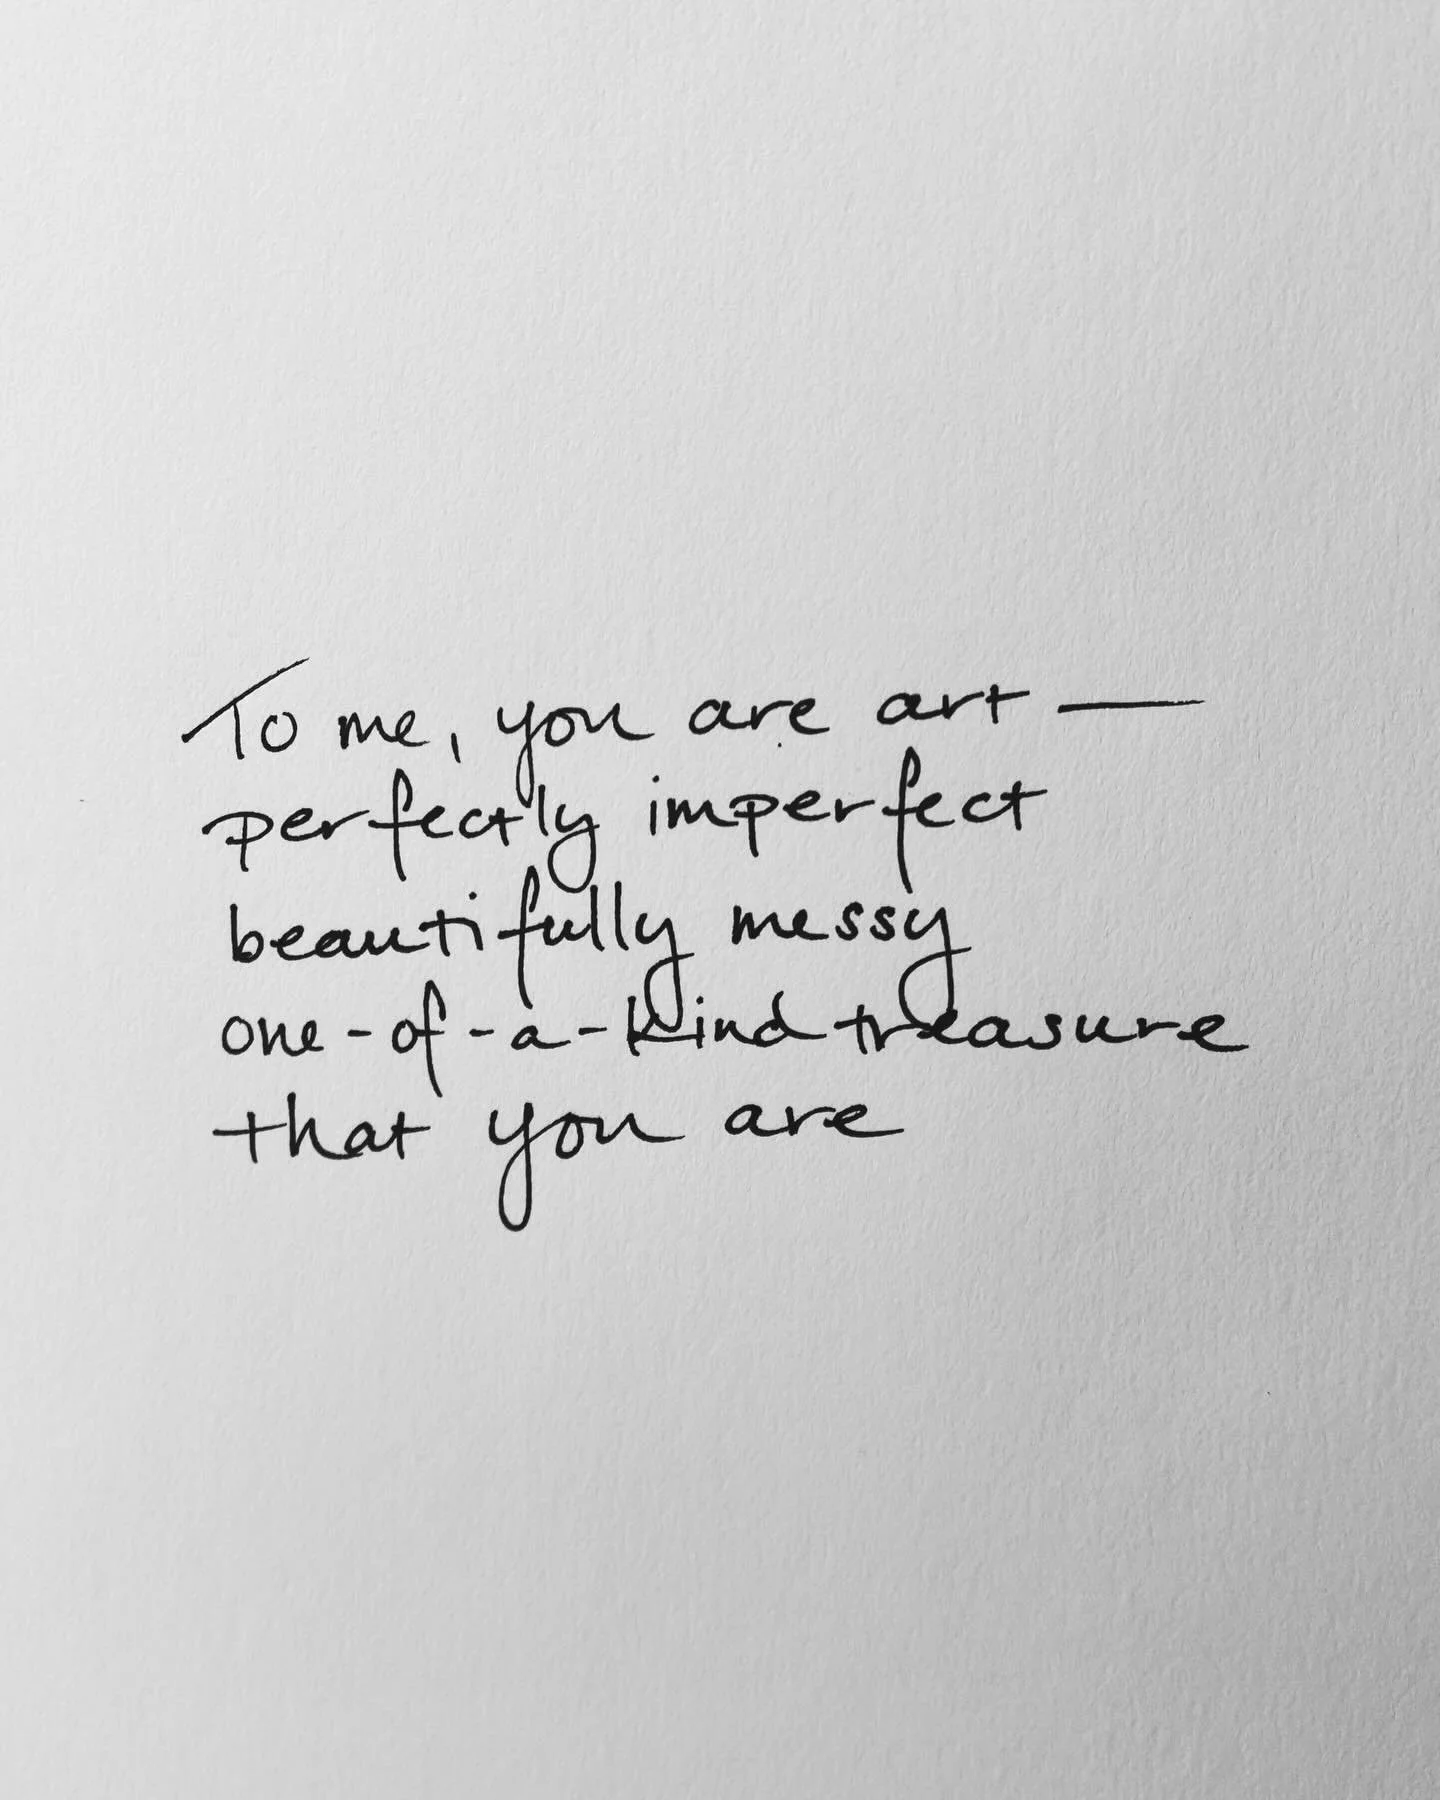 To me, you are art —
perfectly imperfect
beautifully messy
one-of-a-kind treasure
that you are